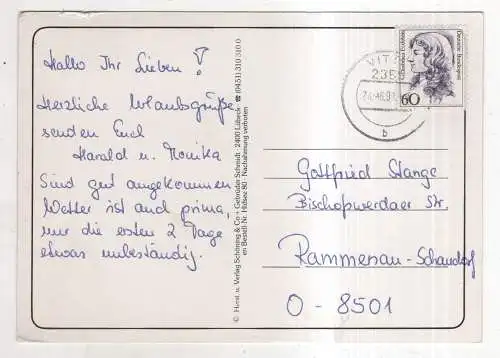 Hallo Ihr Lieben!
Herzliche Urlaubsgrüße
senden Euch
Harald u. Monika
Sind gut angekommen
Wetter ist auch prima,
nur die ersten 2 Tage
etwas unbeständig.
© Horst. u. Verlag Schöning & Co + Gebrüder Schmidt · 2400 Lübeck · ☎ (0451) 310 310 0
en Bestell-Nr. Hülsee 80 · Nachahmung verboten
60
Deutsche Bundespost
b
Gottfried Stange
Bischofswerdaer Str.
Rammenau-Schaudorf
O-8501